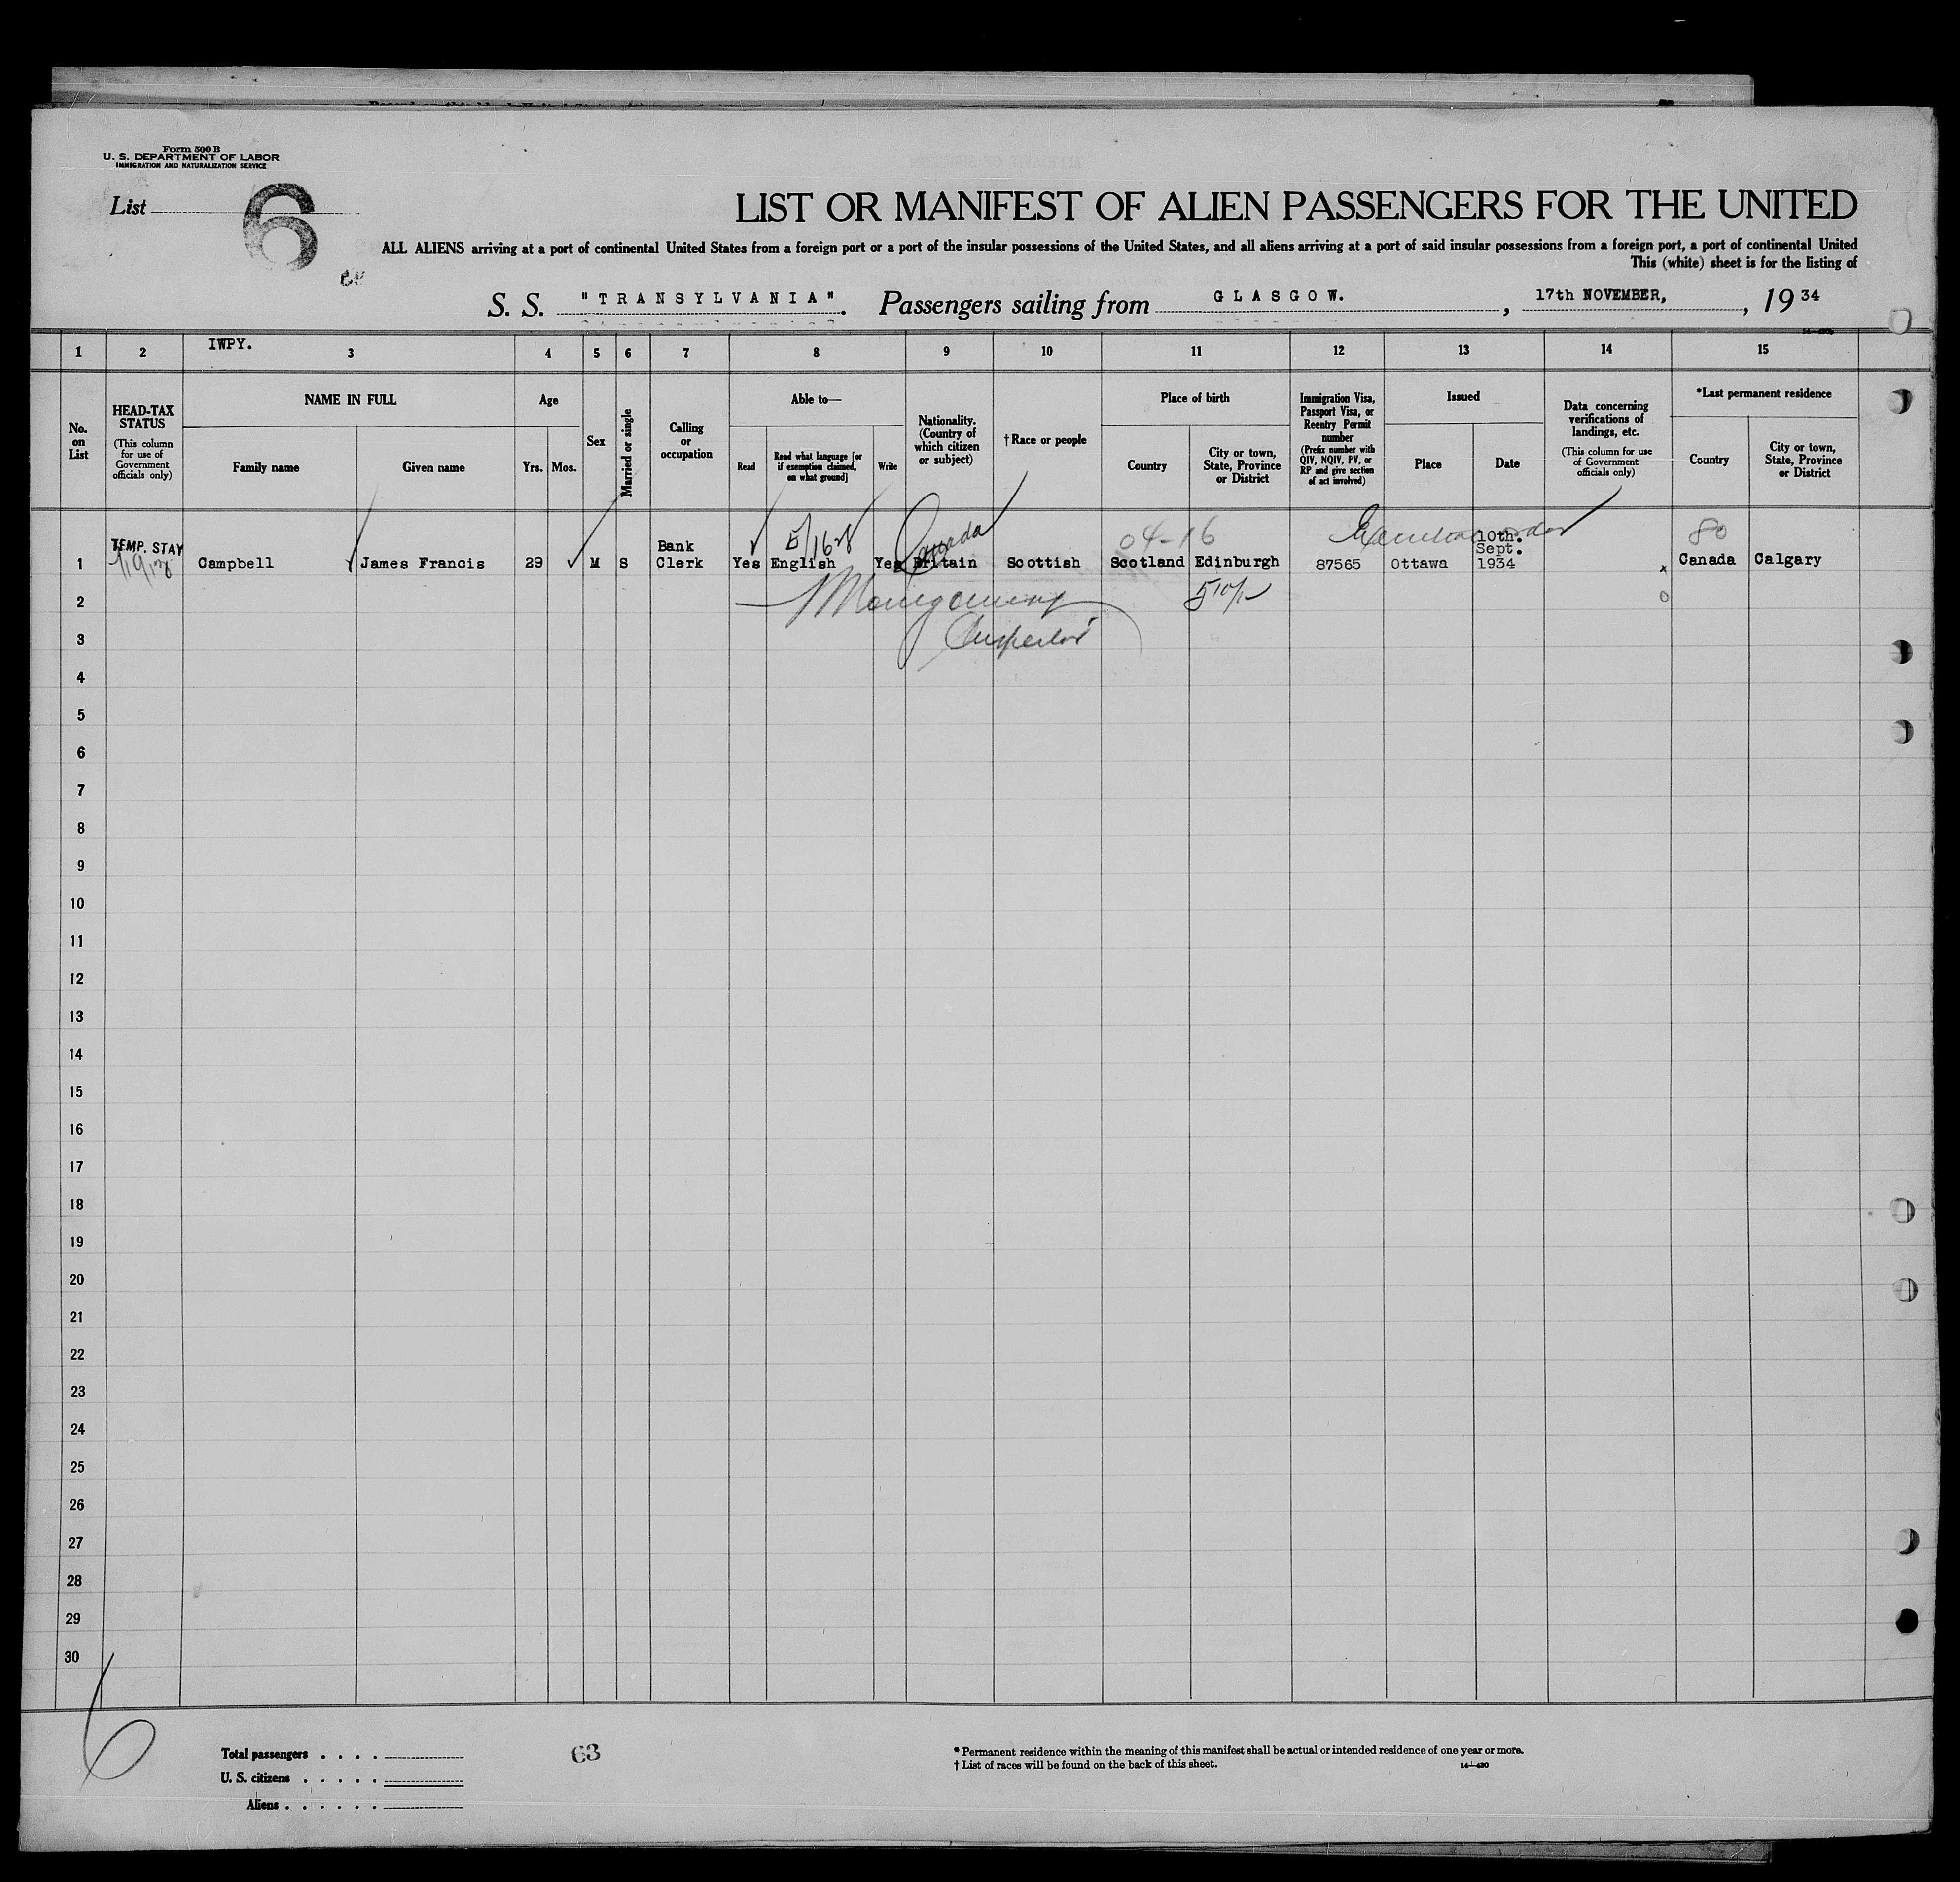 Form 500 B
U. S. DEPARTMENT OF LABOR
IMMIGRATION AND NATURALIZATION SERVICE
List 6
LIST OR MANIFEST OF ALIEN PASSENGERS FOR THE UNITED
ALL ALIENS arriving at a port of continental United States from a foreign port or a port of the insular possessions of the United States, and all aliens arriving at a port of said insular possessions from a foreign port, a port of continental United
This (white) sheet is for the listing of
S. S. "TRANSYLVANIA". Passengers sailing from GLASGOW. , 17th NOVEMBER, , 19 34
IWPY.
1 2 3 4 5 6 7 8 9 10 11 12 13 14 15
No. on List
HEAD-TAX STATUS
(This column for use of Government officials only)
NAME IN FULL
Family name
Given name
Age
Yrs.
Mos.
Sex
Married or single
Calling or occupation
Able to—
Read
Read what language [or if exemption claimed, on what ground]
Write
Nationality. (Country of which citizen or subject)
† Race or people
Place of birth
Country
City or town, State, Province or District
Immigration Visa, Passport Visa, or Reentry Permit number
(Prefix number with QIV, NQIV, PV, or RP and give section of act involved)
Issued
Place
Date
Data concerning verifications of landings, etc.
(This column for use of Government officials only)
*Last permanent residence
Country
City or town, State, Province or District
Canada 04-16 80
1 TEMP. STAY Campbell James Francis 29 M S Bank Clerk Yes English Yes Britain Scottish Scotland Edinburgh 87565 Ottawa 10th. Sept. 1934 x Canada Calgary
2 Montgomery
3 Inspector
4
5
6
7
8
9
10
11
12
13
14
15
16
17
18
19
20
21
22
23
24
25
26
27
28
29
30
6
Total passengers . . . .
U. S. citizens . . . . .
Aliens . . . . . .
63
* Permanent residence within the meaning of this manifest shall be actual or intended residence of one year or more.
† List of races will be found on the back of this sheet.
14—430